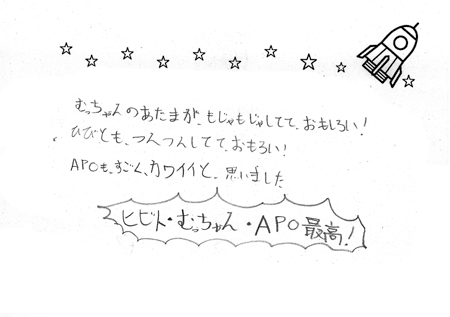 むっちゃんのあたまが、もじゃもじゃしてて、おもしろい!
ひびとも、つんつんしてて、おもろい!
APOも、すごく、カワイイと、思いました
ヒビト・むっちゃん・APO最高!